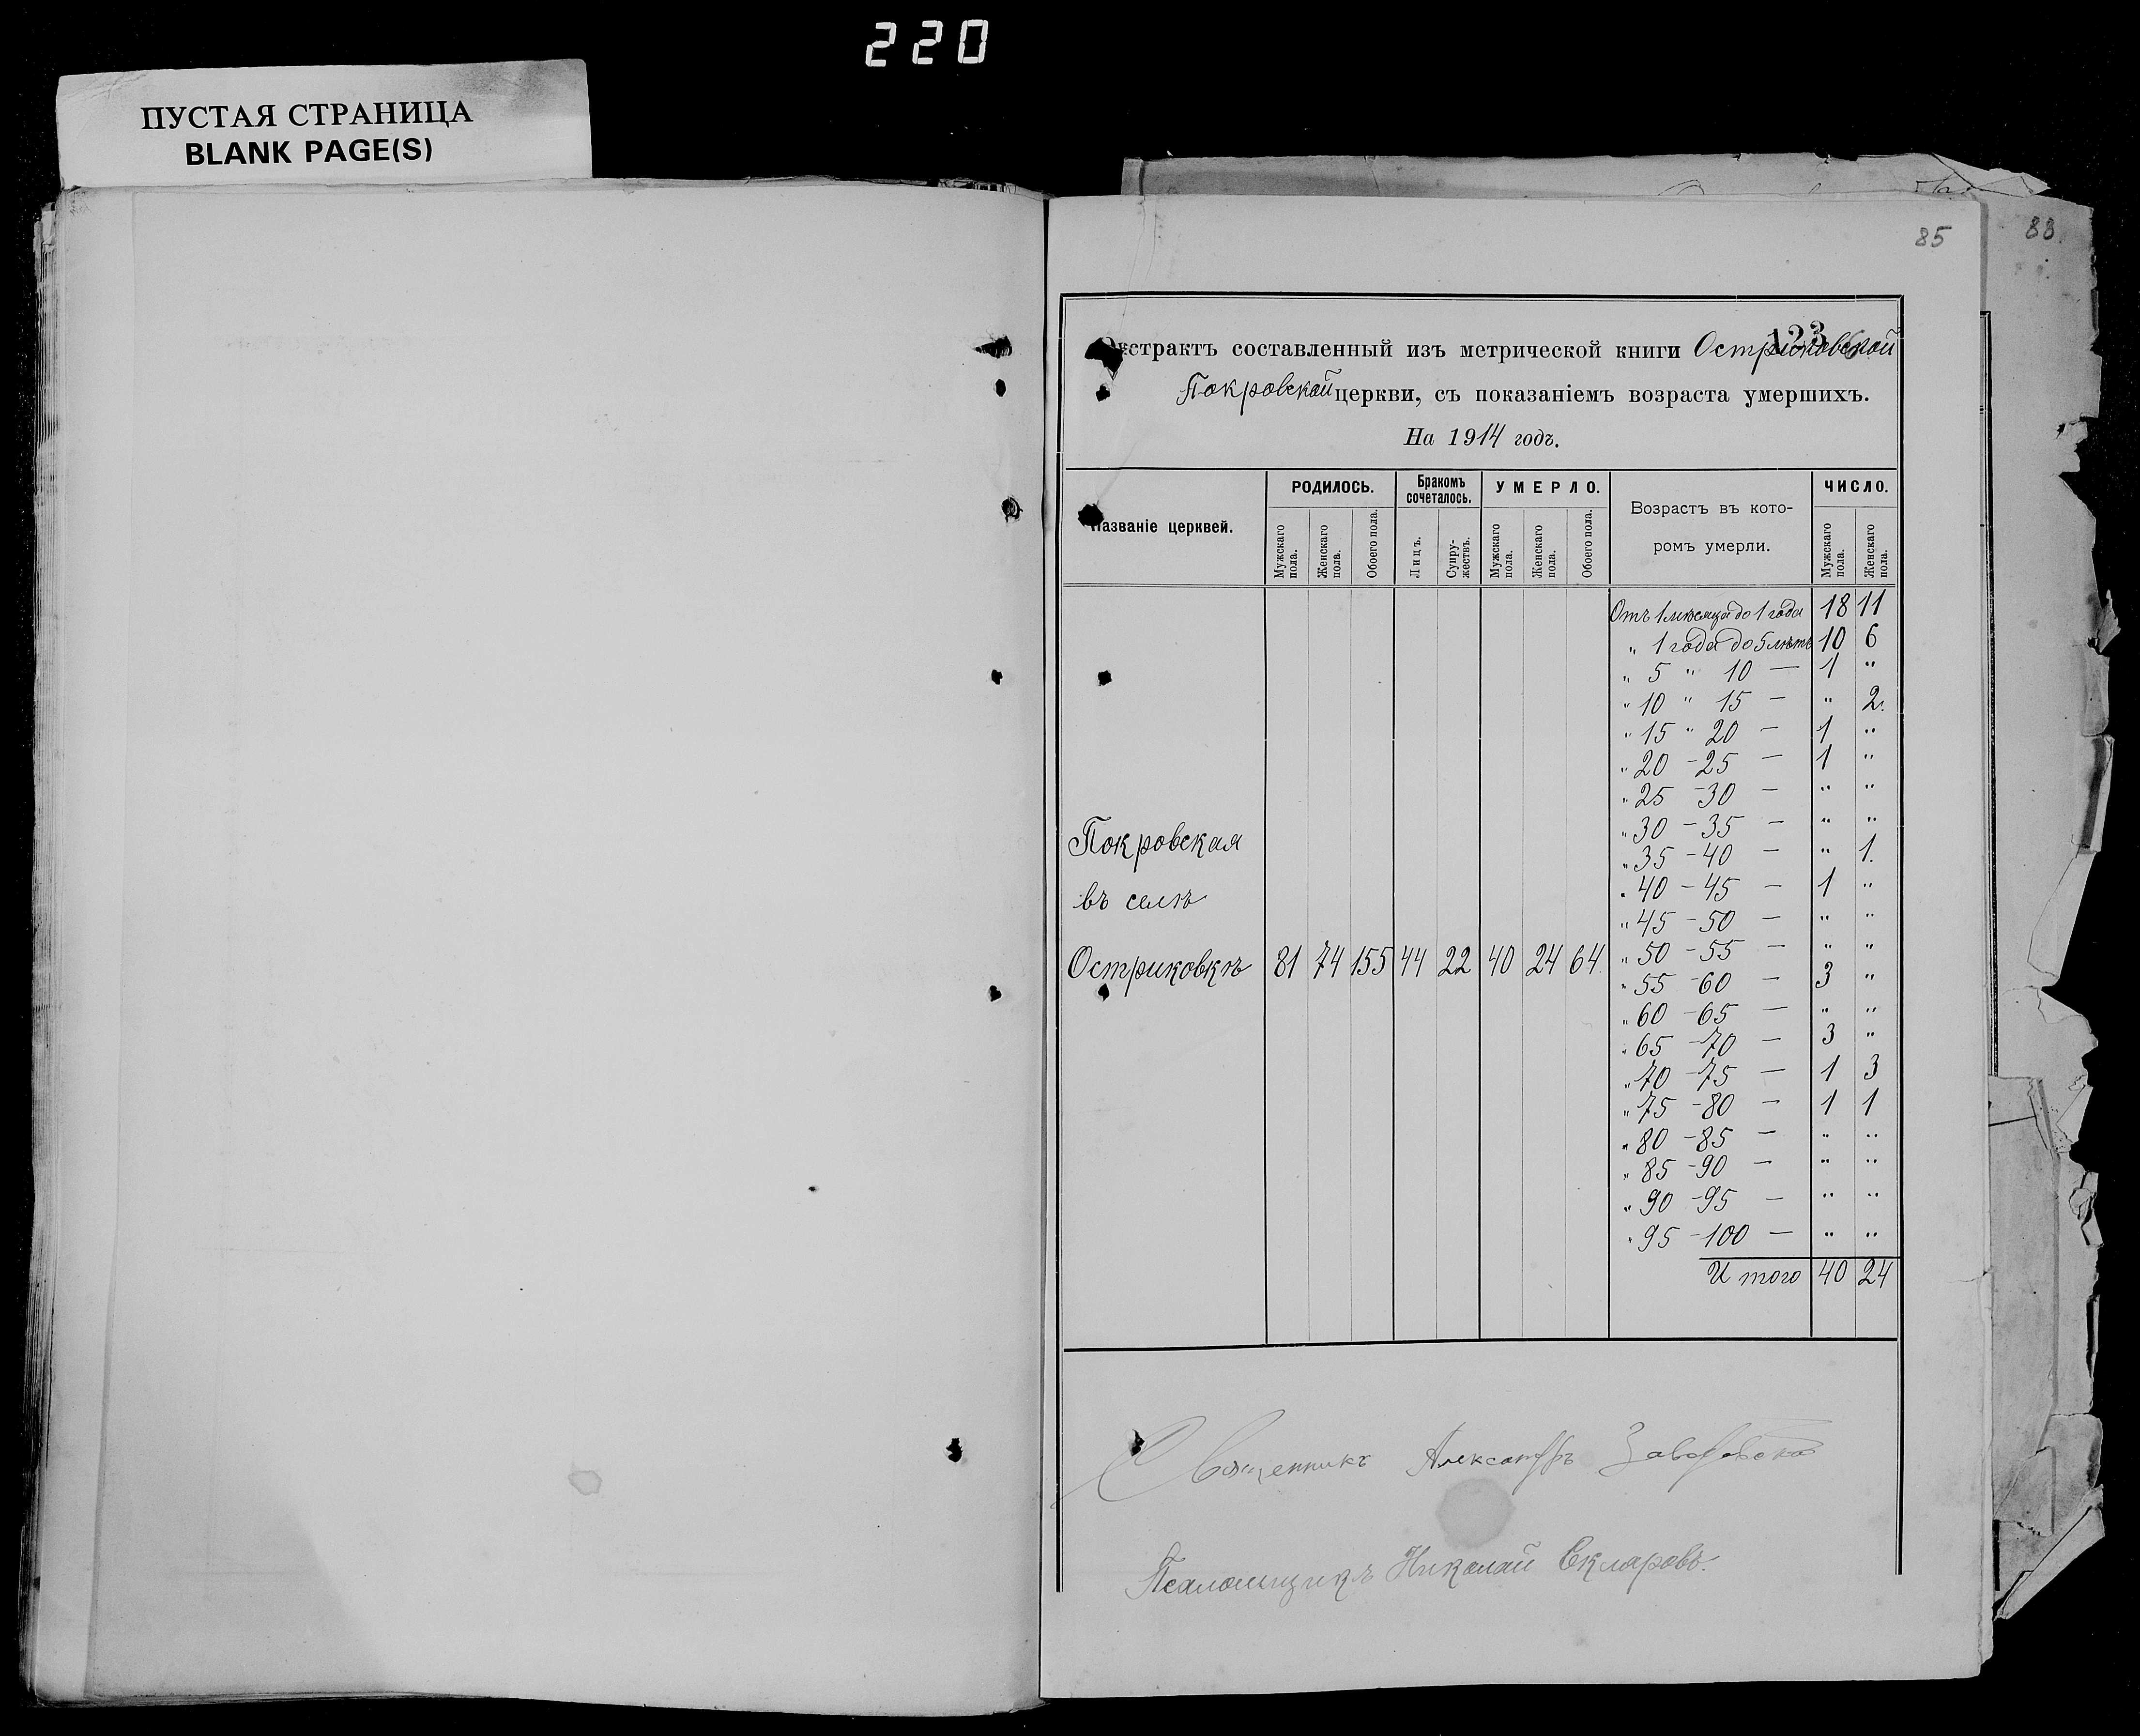 220
ПУСТАЯ СТРАНИЦА
BLANK PAGE(S)
85
88.
123
Экстрактъ составленный изъ метрической книги Остриковской
Покровской церкви, съ показаніемъ возраста умершихъ.
На 1914 годъ.
Названіе церквей.
РОДИЛОСЬ.
Мужскаго пола.
Женскаго пола.
Обоего пола.
Бракомъ сочеталось.
Лицъ.
Супружествъ.
УМЕРЛО.
Мужскаго пола.
Женскаго пола.
Обоего пола.
Возрастъ въ кото-
ромъ умерли.
ЧИСЛО.
Мужскаго пола.
Женскаго пола.
Отъ 1 мѣсяца до 1 года 18 11
„ 1 года до 5 лѣтъ 10 6
„ 5 „ 10 — 1 „
„ 10 „ 15 — „ 2.
„ 15 „ 20 — 1 „
„ 20 – 25 — 1 „
„ 25 – 30 — „ „
„ 30 – 35 — „ „
„ 35 – 40 — „ 1.
„ 40 – 45 — 1 „
„ 45 – 50 — „ „
„ 50 – 55 — „ „
„ 55 – 60 — 3 „
„ 60 – 65 — „ „
„ 65 – 70 — 3 „
„ 70 – 75 — 1 3
„ 75 – 80 — 1 1
„ 80 – 85 — „ „
„ 85 – 90 — „ „
„ 90 – 95 — „ „
„ 95 – 100 — „ „
И того 40 24
Покровская
въ селѣ
Остриковкѣ 81 74 155 44 22 40 24 64.
Священникъ Александръ
Псаломщикъ Николай Скларовъ.